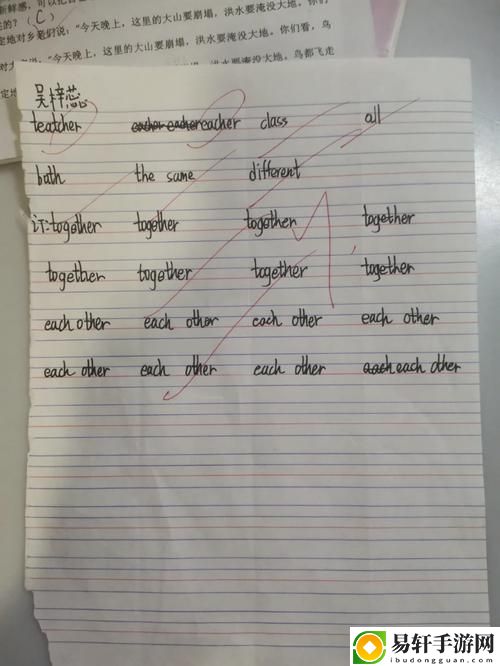 新鲜感,可以把自
的?(C)们看,
定地对乡老们说:"今天晚上,这里的大山要崩塌,洪水要淹没大地。你们
对大 "今天晚上,这里的大山要崩塌,洪水要淹没大地。你们看,鸟
定地 洪水要淹没大地。鸟都飞走
吴梓蕊
teatcher eacher eacher eacher class all
bath the same different
订:together together together together
together together together together
each other each other each other each other
each other each other each other each each other
易轩手游网
ibudongguan.com